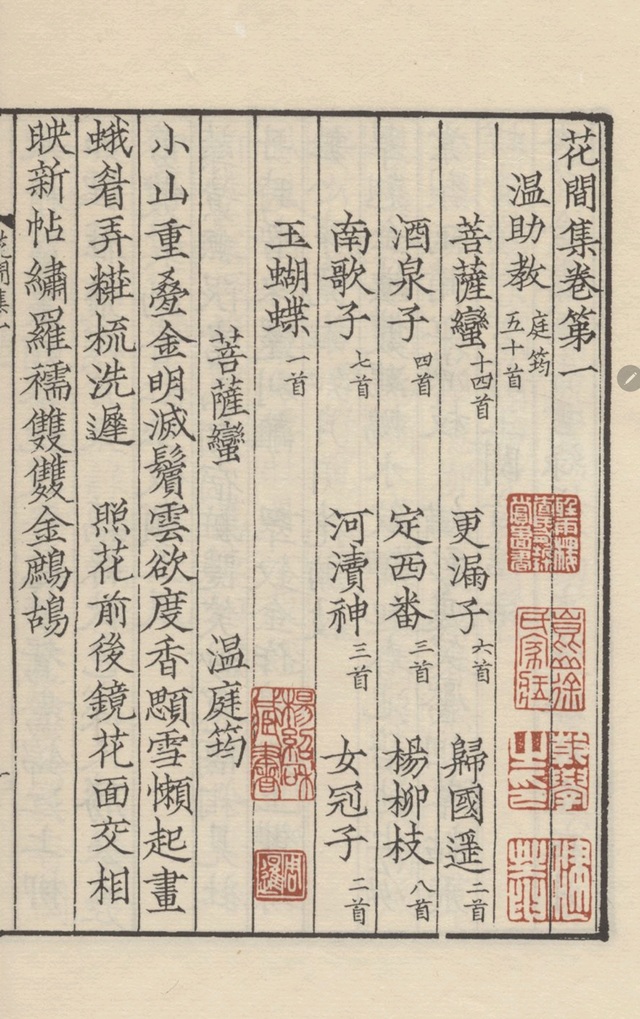 花間集卷第一
温助教庭筠五十首
菩薩蠻十四首 更漏子六首 歸國遥二首
酒泉子四首 定西番三首 楊柳枝八首
南歌子七首 河瀆神三首 女冠子二首
玉蝴蝶一首
菩薩蠻 温庭筠
小山重疊金明滅鬢雲欲度香顋雪懶起畫
蛾眉弄糚梳洗遲 照花前後鏡花面交相
映新帖繡羅襦雙雙金鷓鴣
花間集一